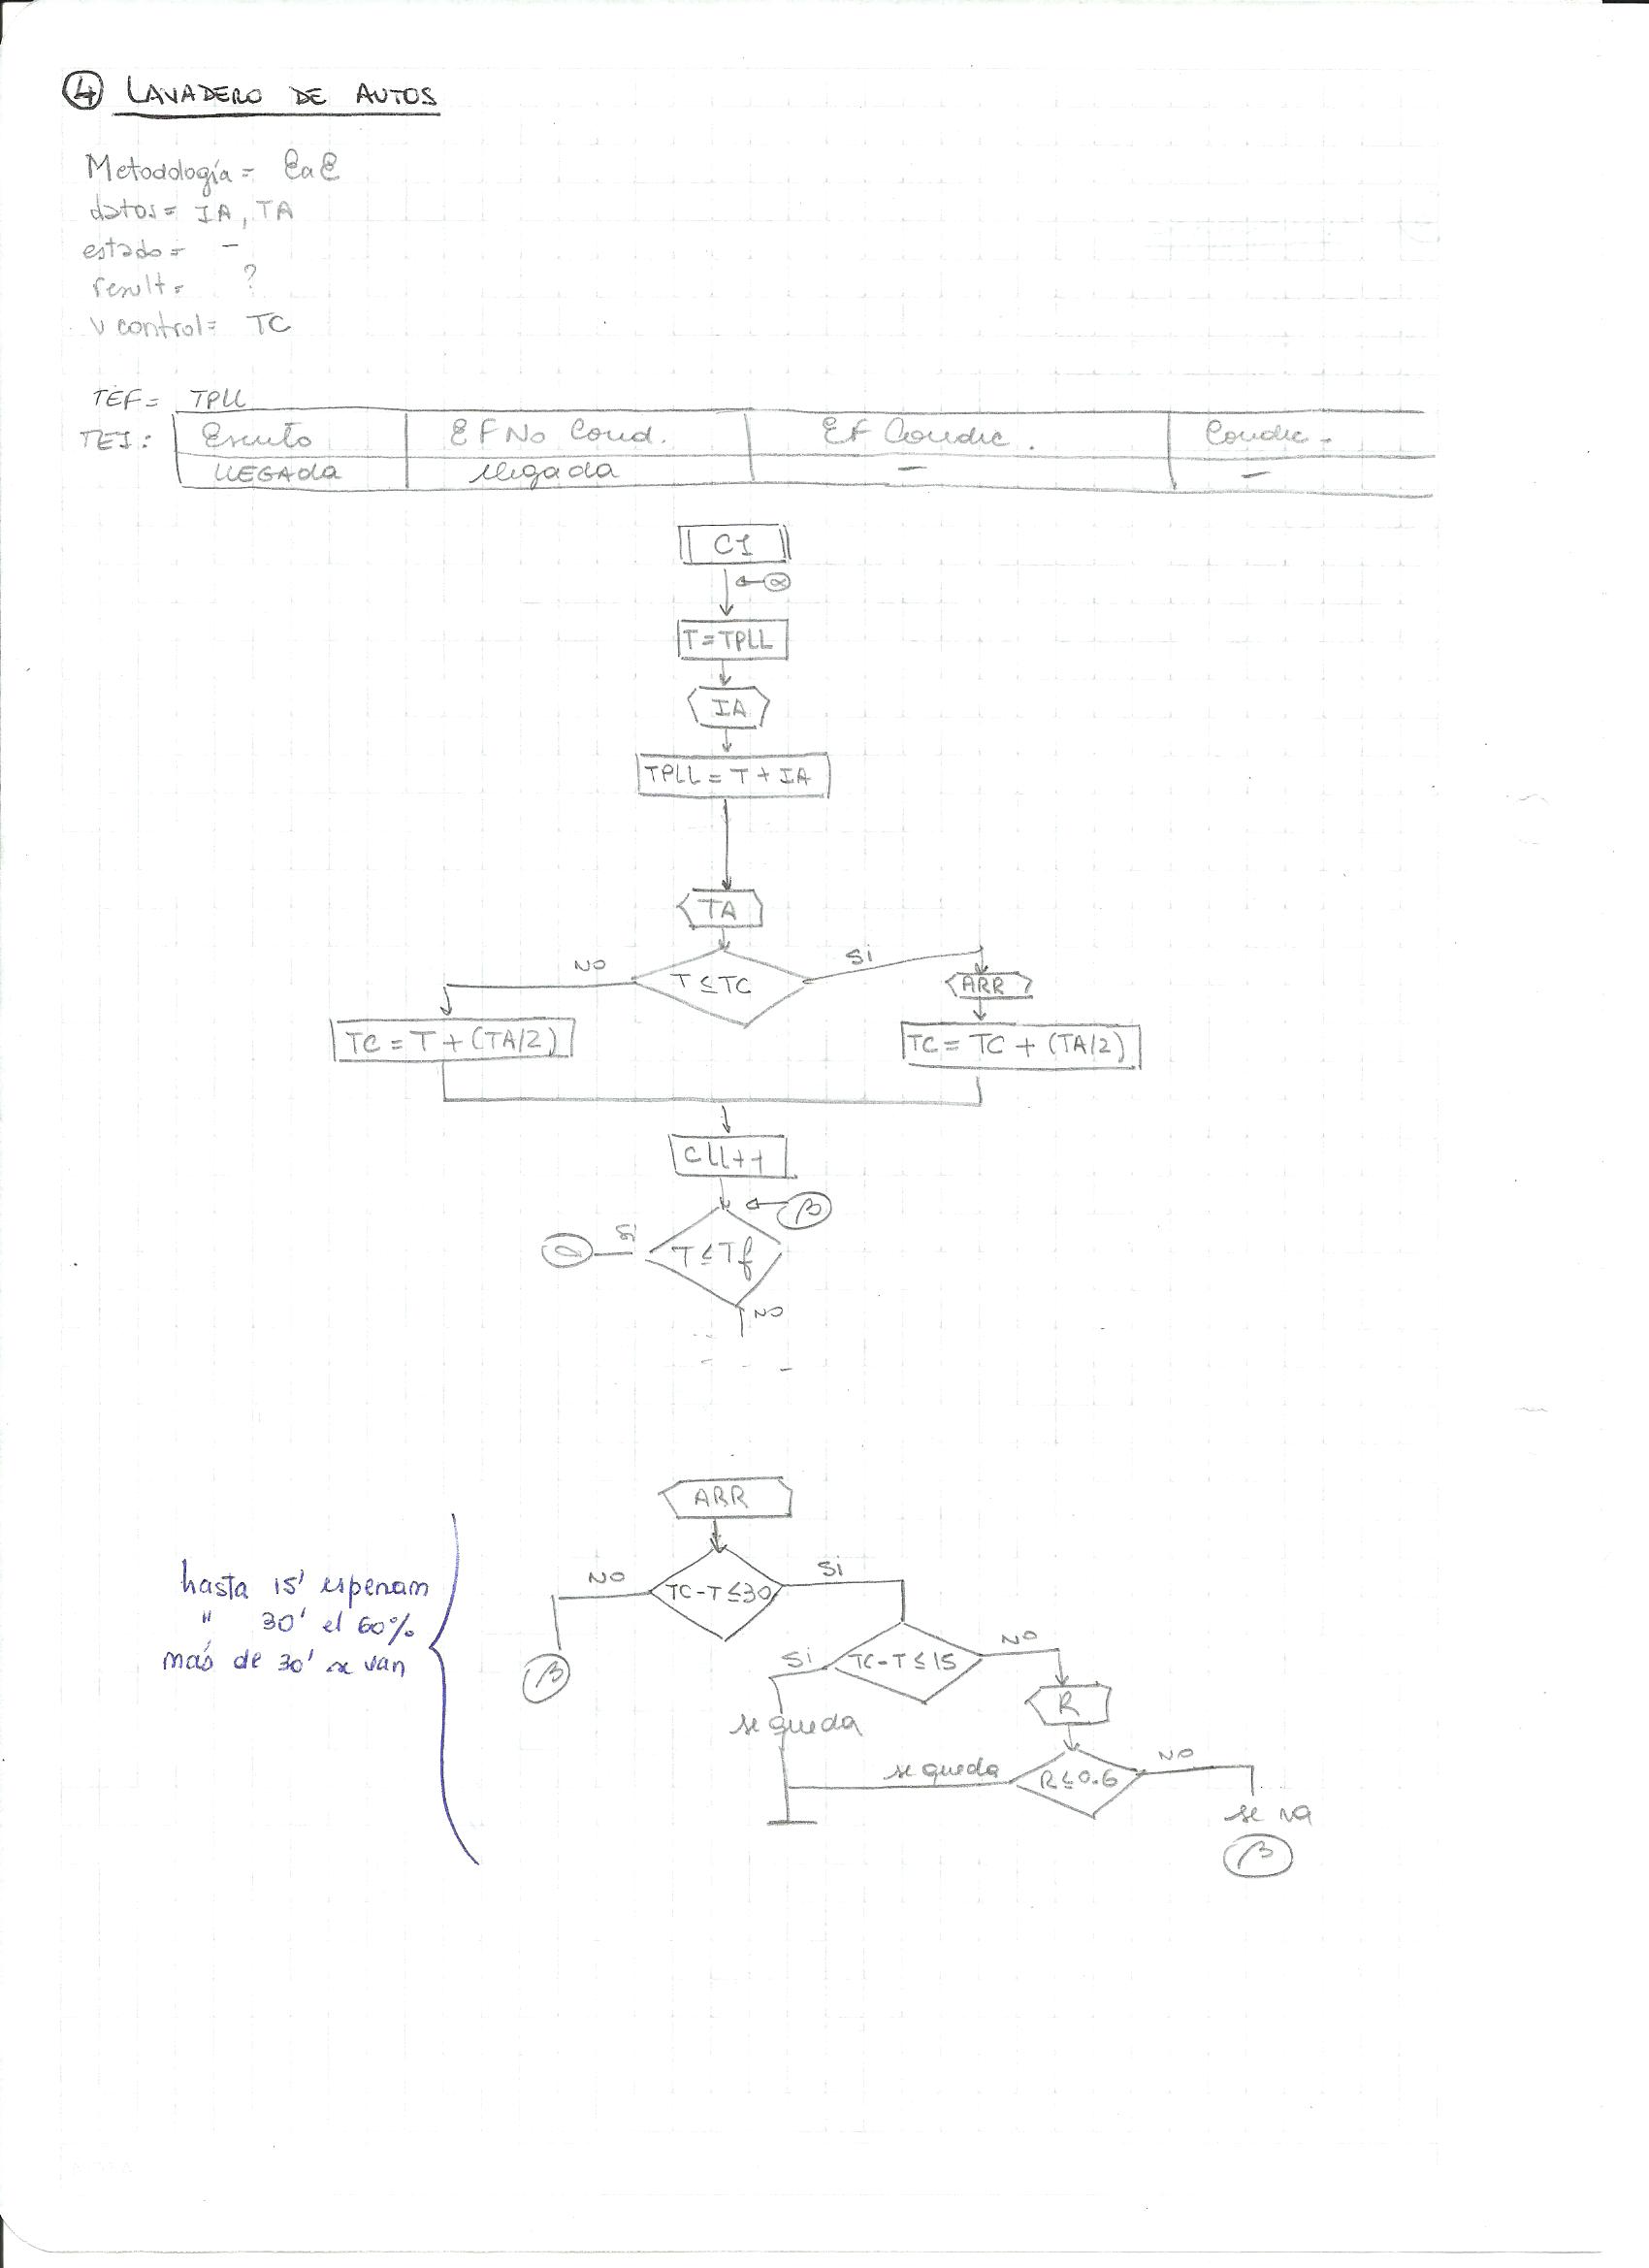 4 LAVADERO DE AUTOS
Metodología = EaE
datos = IA, TA
estado = -
result = ?
v control = TC
TEF = TPLL
TEI: Evento EF No Cond. EF Condic. Condic.
LLEGADA llegada - -
CI
α
T = TPLL
IA
TPLL = T + IA
TA
NO T ≤ TC SI
ARR
TC = T + (TA/2) TC = TC + (TA/2)
CLL++
β
SI T ≤ Tf
NO
ARR
NO TC-T ≤ 30 SI
hasta 15' esperan
" 30' el 60%
más de 30' se van
β
SI TC-T ≤ 15 NO
R
se queda
se queda R ≤ 0.6 NO
se va
β